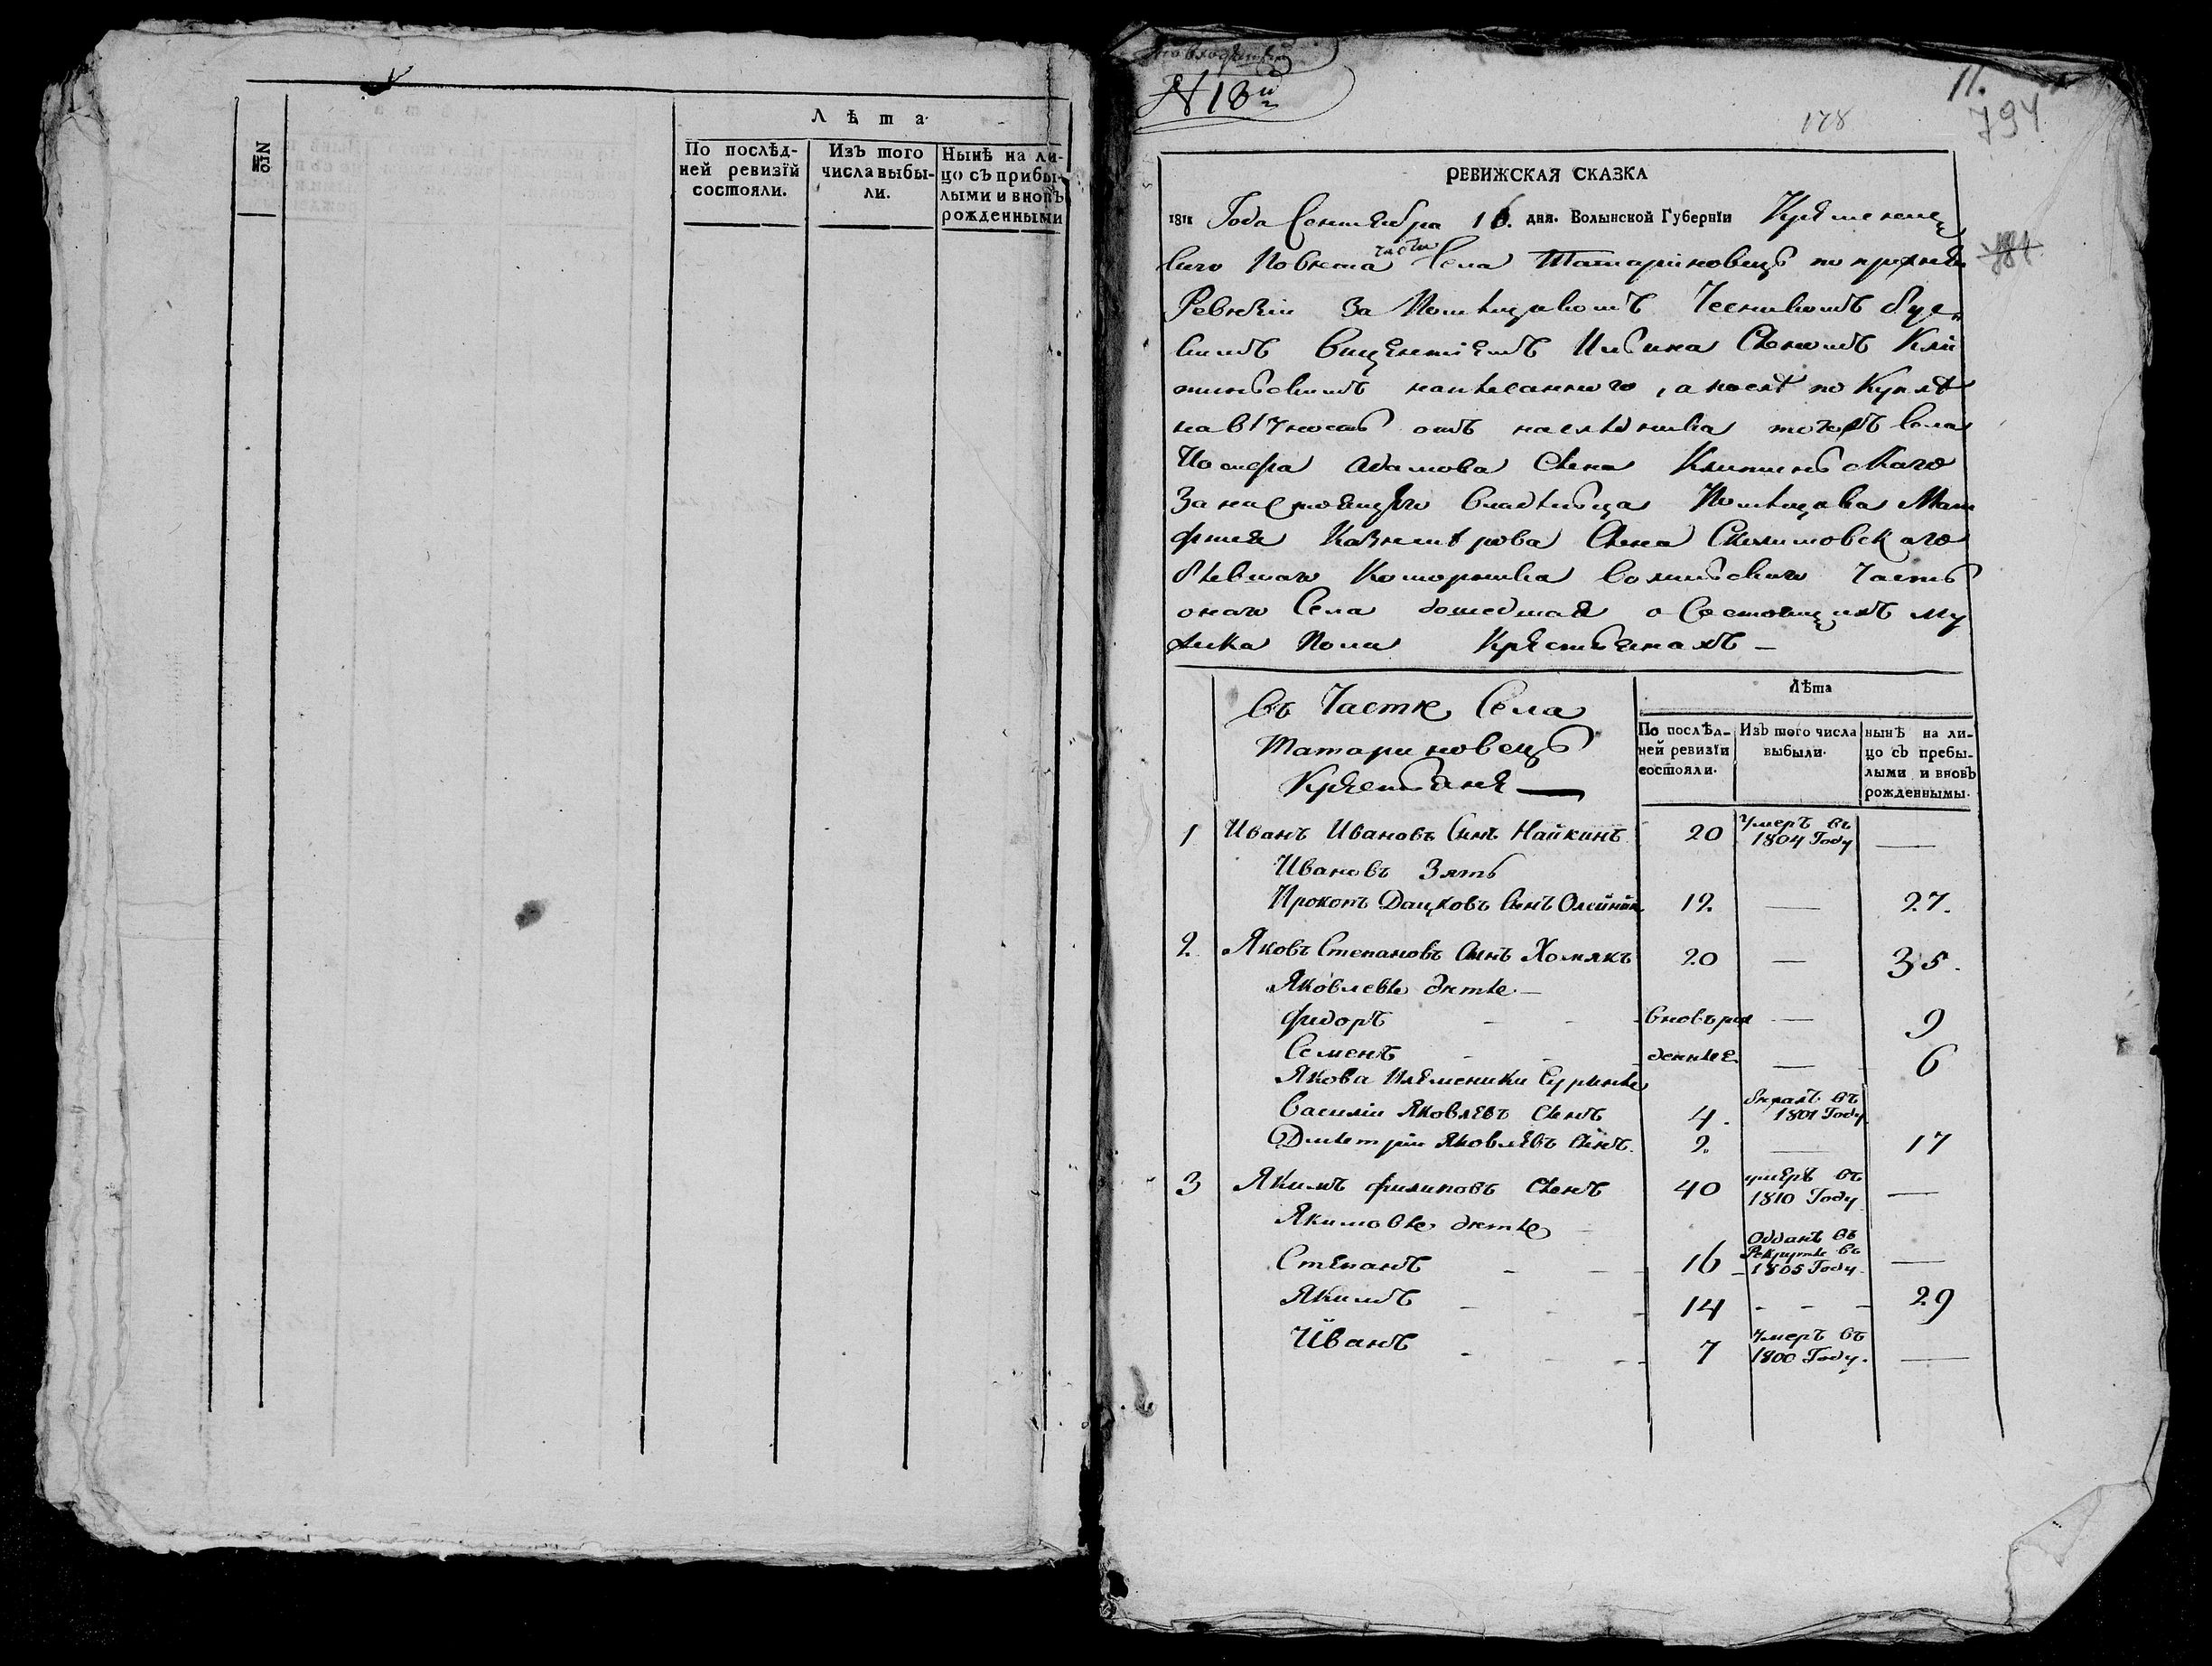 №
Лѣта
По послѣд-
ней ревизїй
состояли.
Изъ того
числа выбы-
ли.
Нынѣ на ли-
цо съ прибы-
лыми и вновь
рожденными
№ 13й
11.
794
178
РЕВИЖСКАЯ СКАЗКА
1811 Года Сентября 16. дня. Волынской Губернїи Кременец
каго Повета части Села Татариновецъ по прежней
Ревизіи за Помѣщикомъ Чесникомъ
Вицентіемъ Сыномъ Кли
написанного, а после по Куплѣ
на вѣчность отъ наследника тогожъ села
Адамова Сына Клитинскаго
за настоящаго владельца Помѣщика Мат
фтея Казимѣрова Сына
бывшаго Коморника часть
онаго Села дошедшая о Состоящихъ му
жска Пола Крестьянахъ —
Въ Части Села
Татариновецъ
Крестьяне —
Лѣта
По послѣд-
ней ревизїи
состояли.
Изъ того числа
выбыли.
нынѣ на ли-
цо съ пребы-
лыми и вновь
рожденнымы.
1 Иванъ Ивановъ Сынъ Найкинъ 20 Умеръ въ 1804 Году —
Ивановъ Зять
Прокопъ Дацковъ Сынъ Олейник 12. — 27.
2. Яковъ Степановъ Сынъ Хомякъ 20 — 35.
Яковлевы дети —
Фидоръ - - Вновь рож — 9
Семенъ - - денные — 6
Якова Племеники
Василіи Яковлевъ Сынъ 4. въ 1801 Году
Дметріи Яковлевъ Сынъ. 2. — 17
3 Якимъ Филиповъ Сынъ 40 умеръ въ 1810 Году —
Якимовы дети
Степанъ - - 16 Отданъ въ Рекруты въ 1805 Году —
Якимъ - - - 14 - - - 29
Иванъ - - - 7 Умеръ въ 1800 Году. —